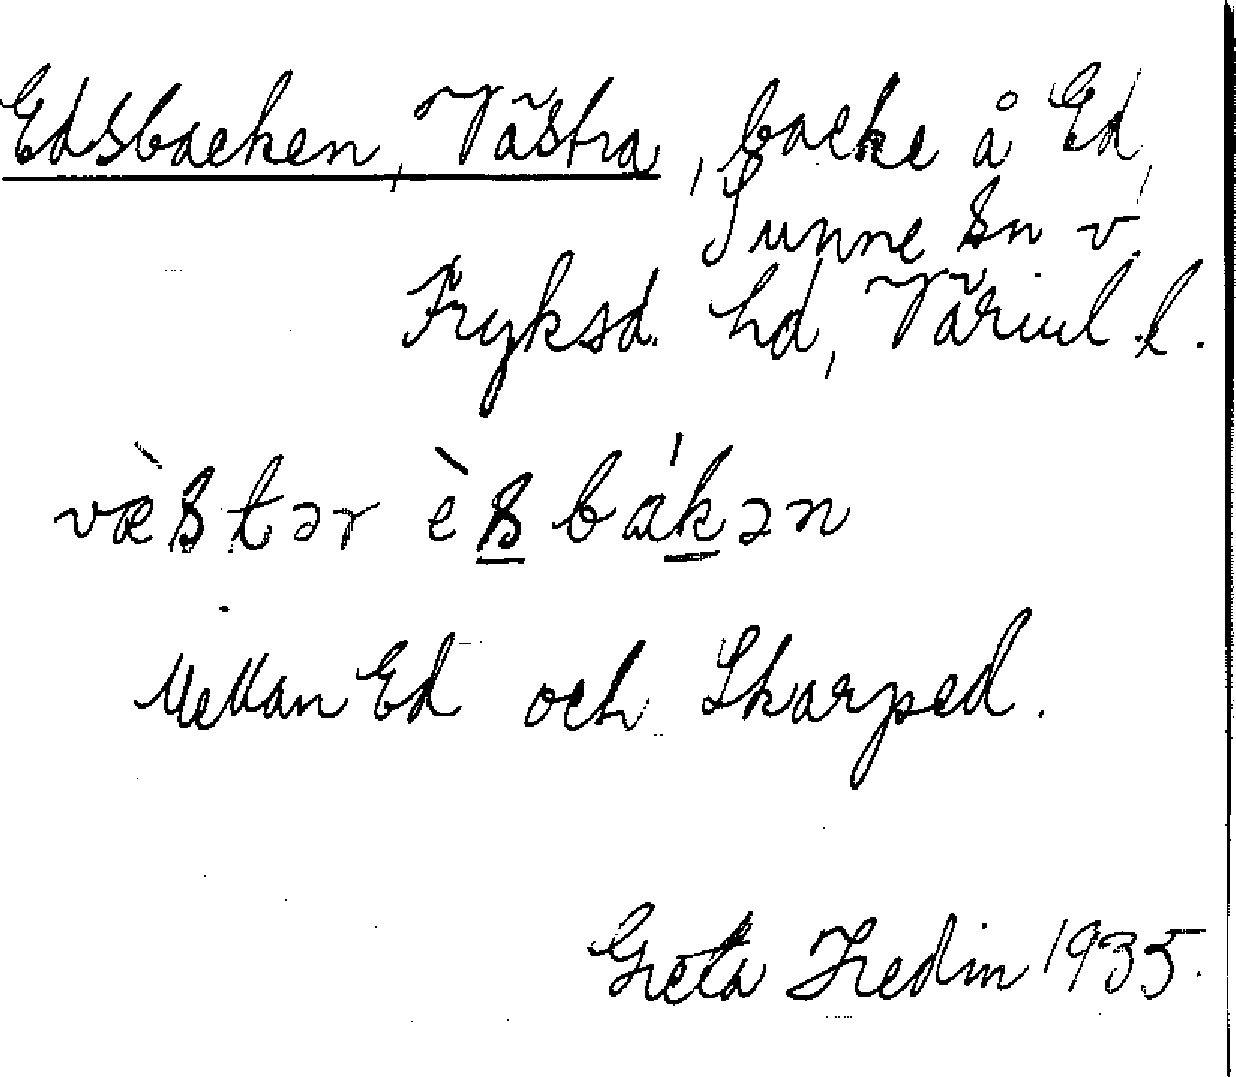 Edsbacken, Västra, backe å Ed,
Sunne sn v
Fryksd. hd, Värml. l.
væ̀stər èsbákən
Mellan Ed och Skarped.
Greta Hedin 1935.